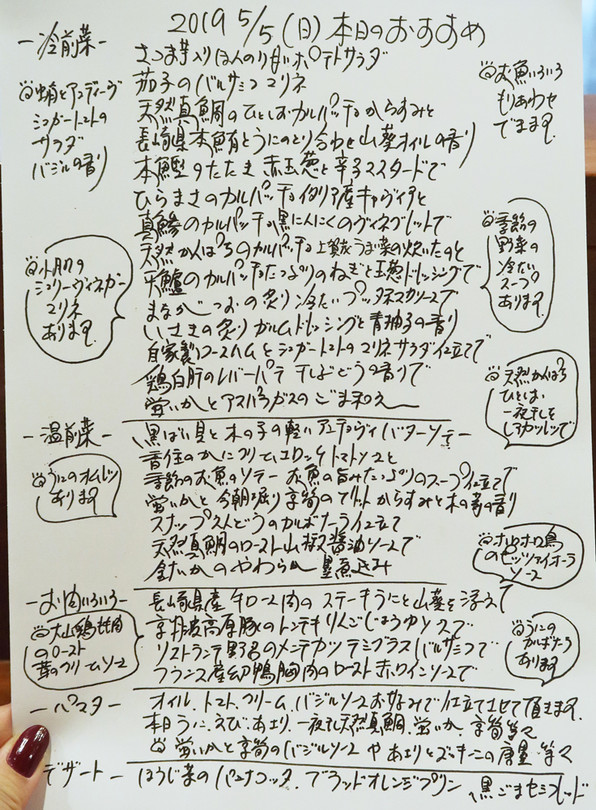 2019 5/5(日)本日のおすすめ
-冷前菜-
さつま芋入りほんのり甘いポテトサラダ
茄子のバルサミコマリネ
天然真鯛のひとしおカルパッチョからすみと
長崎県本鮪とうにのとり合わせ山葵オイルの香り
本鰹のたたき 赤玉葱と辛子マスタードで
ひらまさのカルパッチョイタリア産キャヴィアと
真鯵のカルパッチョ黒にんにくのヴィネグレットで
天然かんぱちのカルパッチョ
天然鱸のカルパッチョたっぷりのねぎと玉葱ドレッシングで
まながつおの炙り冷たいプッタネスカソースで
いさきの炙り ガルムドレッシングと青柚子の香り
自家製ロースハムとシュガートマトのマリネサラダ仕立てで
鶏白肝のレバーパテ 干しぶどうの香りで
蛍いかとアスパラガスのごま和え
蛸とアンディーヴ
シュガートマトの
サラダ
バジルの香り
小肌の
シェリーヴィネガー
マリネ
あります
お魚いろいろ
もりあわせ
できます
季節の
野菜の
冷たい
スープ
あります
天然かんぱち
ひとしお
一夜干しを
レアカツレツで
-温前菜-
黒ばい貝と木の子の軽いアンチョヴィバターソテー
香住のかにクリームコロッケトマトソースと
季節のお魚のソテー お魚の旨みたっぷりのスープ仕立て
蛍いかと今朝堀り京筍のフリット からすみと木の芽の香り
スナップえんどうのカルボナーラ仕立て
天然真鯛のロースト山椒醤油ソースで
金いかのやわらか墨煮込み
うにのオムレツ
あります
ホロホロ鳥
のビッツァイオーラ
ソース
-お肉いろいろ-
長崎県産牛ロース肉のステーキうにと山葵を添えて
京丹波高原豚のトンテキりんごじょうゆソースで
リストランテ野呂のメンチカツ デミグラスバルサミコで
フランス産幼鴨胸肉のロースト赤ワインソースで
大山鶏もも肉
のロースト
茸のクリームソース
うにの
カルボナーラ
あります
-パスタ-
オイル、トマト、クリーム、バジルソースお好みで仕立てさせて頂きます。
本日うに、えび、あさり、一夜干し天然真鯛、蛍いか、京筍等々
蛍いかと京筍のバジルソース やあさりとズッキーニの唐墨 等々
デザート-
ほうじ茶のパンナコッタ、ブラッドオレンジプリン 黒ごまセミフレッド